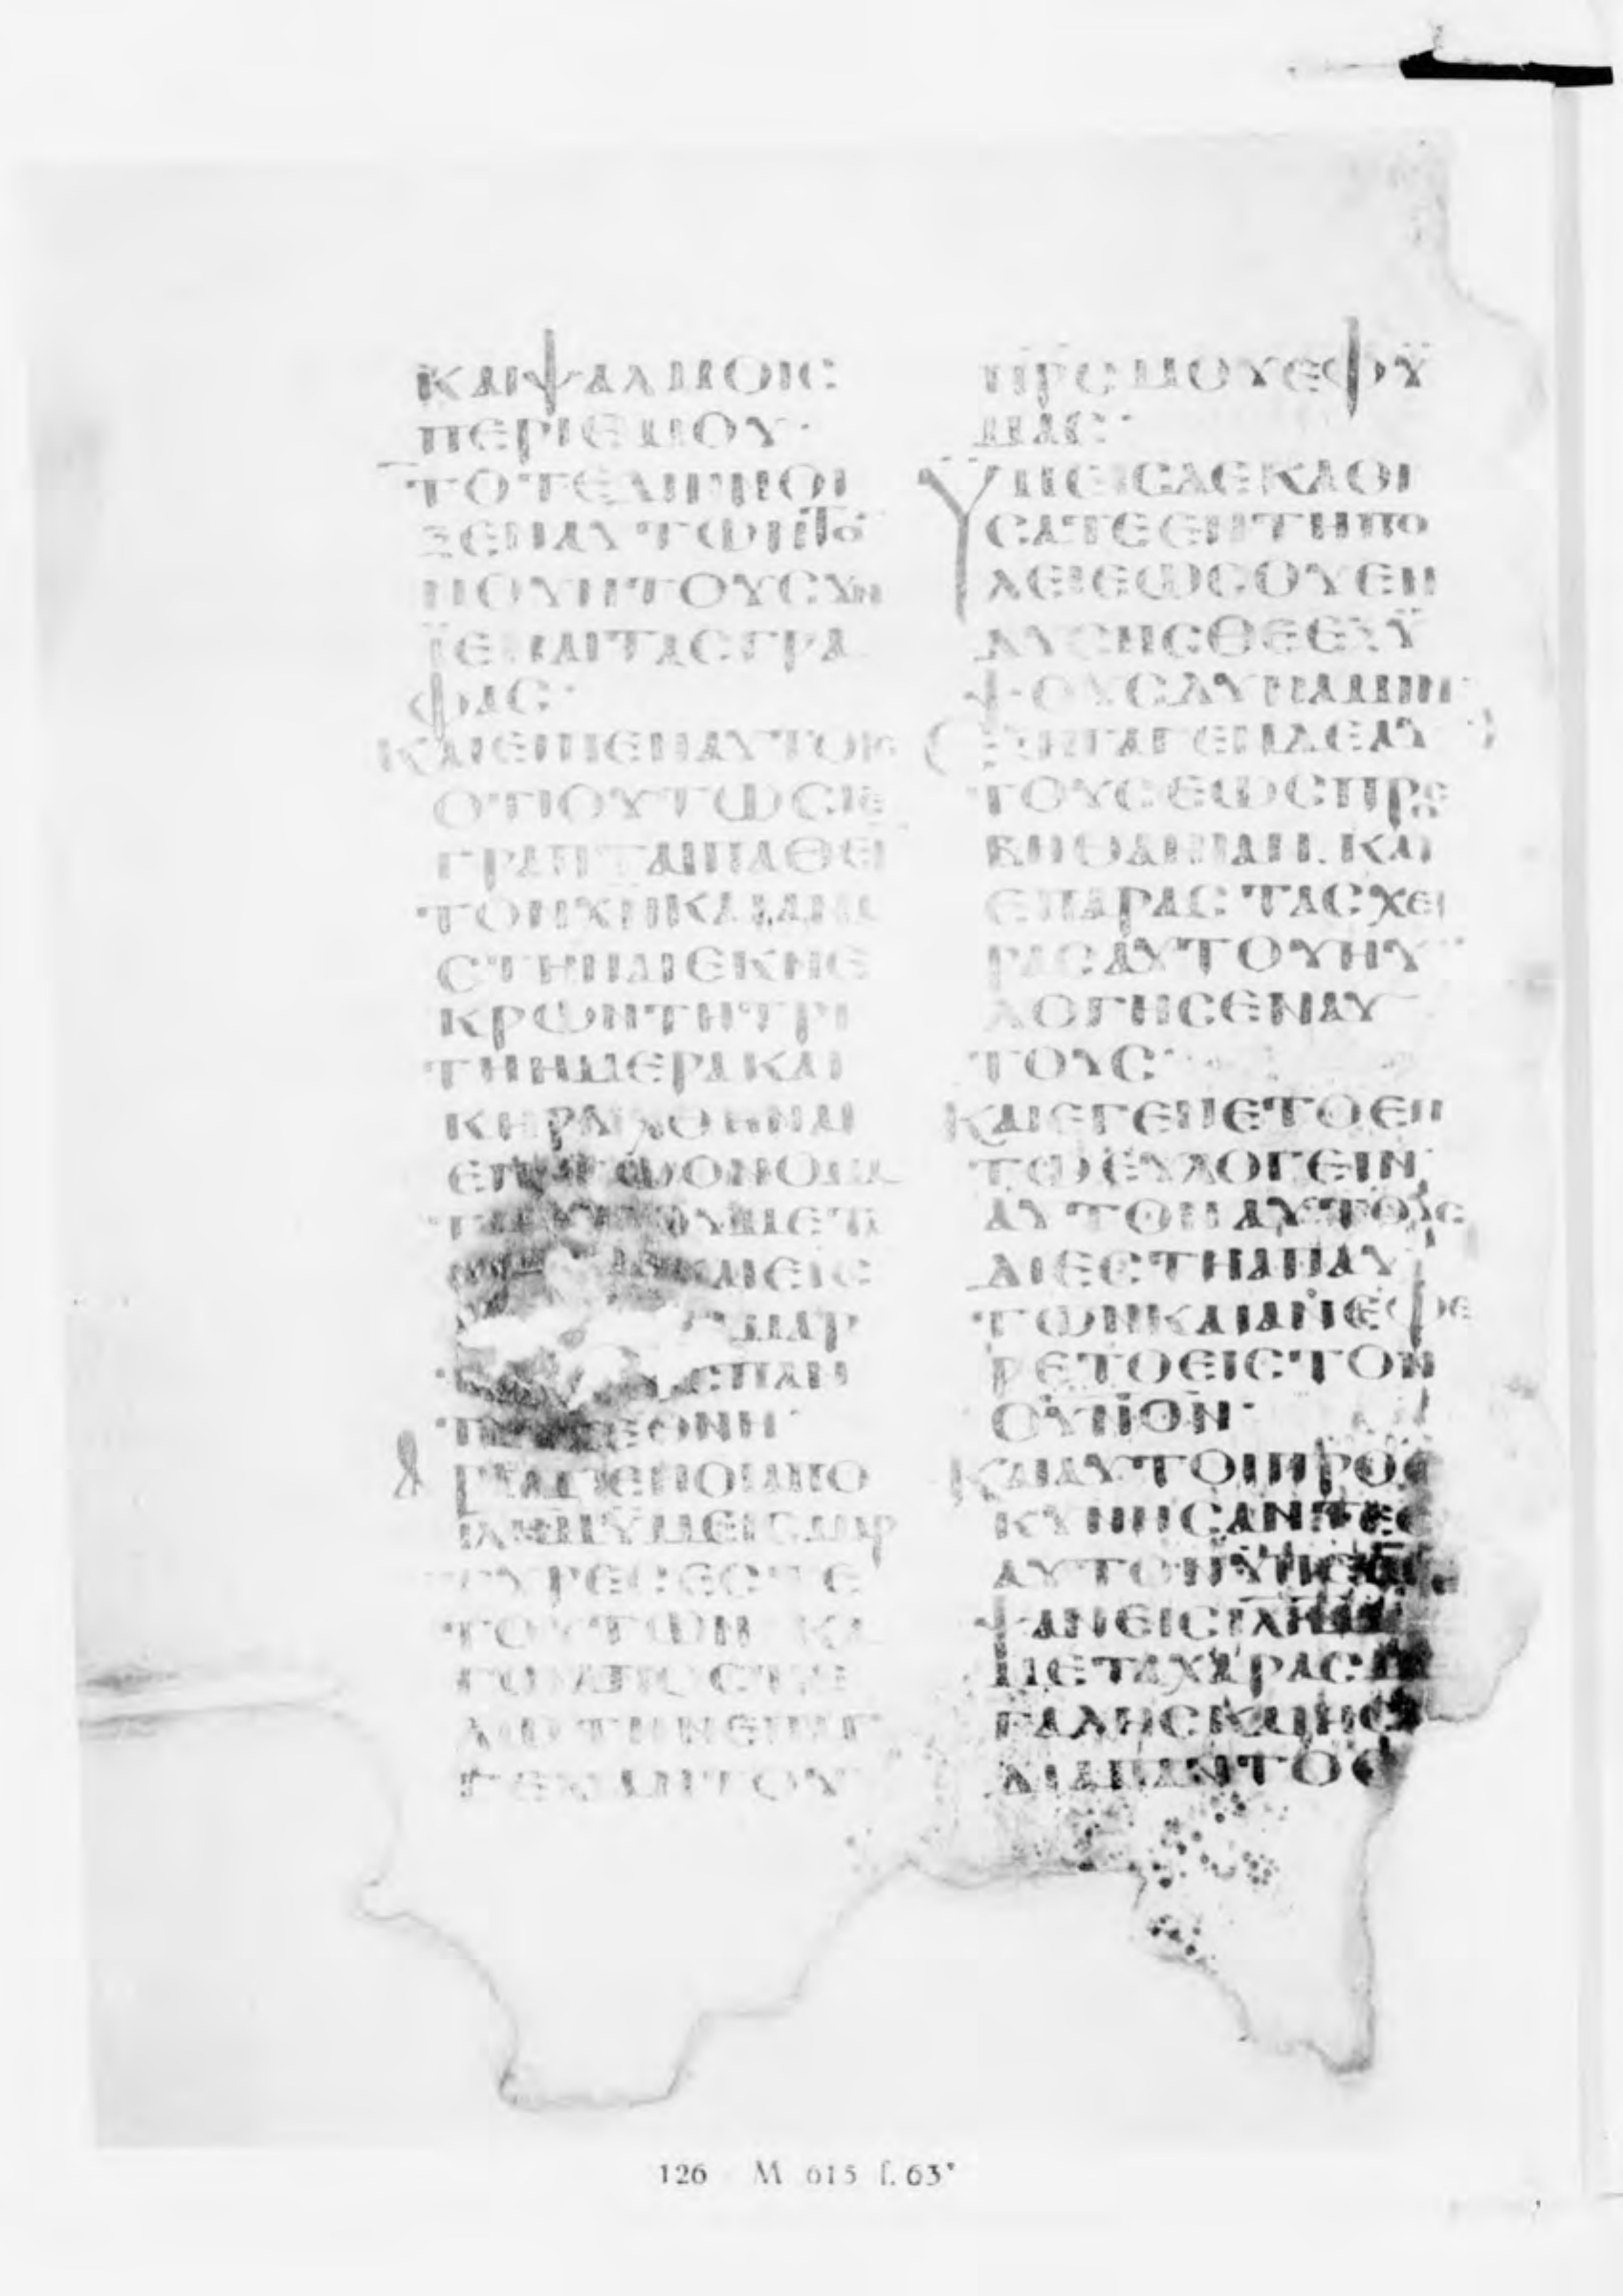 ΚΑΙΨΑΛΜΟΙΣ
ΠΕΡΙΕΜΟΥ·
ΤΟΤΕΔΙΗΝΟΙ
ΞΕΝΑΥΤΩΝΤΟ
ΝΟΥΝΤΟΥΣΥΝ
ΪΕΝΑΙΤΑΣΓΡΑ
ΦΑΣ·
ΚΑΙΕΙΠΕΝΑΥΤΟΙΣ
ΟΤΙΟΥΤΩΣΓΕ
ΓΡΑΠΤΑΙΠΑΘΕΙ
ΤΟΝΧΝΚΑΙΑΝΑ
ΣΤΗΝΑΙΕΚΝΕ
ΚΡΩΝΤΗΤΡΙ
ΤΗΗΜΕΡΑΚΑΙ
ΚΗΡΑΧΘΗΝΑΙ
ΟΝΟΜΑ
ΜΕΤΑ
ΕΙΣ
ΜΑΡ
ΠΑΝ
ΕΘΝΗ·
ΡΞΑΜΕΝΟΙΑΠΟ
ΙΛΗΜΫΜΕΙΣΜΑΡ
ΤΥΡΕΣΕΣΤΕ
ΤΟΥΤΩΝ ΚΑ
ΓΩΑΠΟΣΤΕΛ
ΛΩΤΗΝΕΠΑΓ
ΓΕΛΙΑΝΤΟΥ
ΠΡΣΜΟΥΕΦΫ
ΜΑΣ·
ΫΜΕΙΣΔΕΚΑΘΙ
ΣΑΤΕΕΝΤΗΠΟ
ΛΕΙΕΩΣΟΥΕΝ
ΔΥΣΗΣΘΕΕΞΫ
ΨΟΥΣΔΥΝΑΜΙΝ·
ΕΞΗΓΑΓΕΝΔΕΑΥ
ΤΟΥΣΕΩΣΠΡΟΣ
ΒΗΘΑΝΙΑΝ.ΚΑΙ
ΕΠΑΡΑΣΤΑΣΧΕΙ
ΡΑΣΑΥΤΟΥΗΥ
ΛΟΓΗΣΕΝΑΥ
ΤΟΥΣ·
ΚΑΙΕΓΕΝΕΤΟΕΝ
ΤΩΕΥΛΟΓΕΙΝ
ΑΥΤΟΝΑΥΤΟΥΣ
ΔΙΕΣΤΗΑΠΑΥ
ΤΩΝΚΑΙΑΝΕΦΕ
ΡΕΤΟΕΙΣΤΟΝ
ΟΥΝΟΝ·
ΚΑΙΑΥΤΟΙΠΡΟΣ
ΚΥΝΗΣΑΝΤΕΣ
ΑΥΤΟΝΫΠΕΣΤΡΕ
ΨΑΝΕΙΣΙΛΗΜ
ΜΕΤΑΧΑΡΑΣΜΕ
ΓΑΛΗΣΚΑΙΗΣΑ
ΔΙΑΠΑΝΤΟΣ
126 M 615 f. 63ᵛ